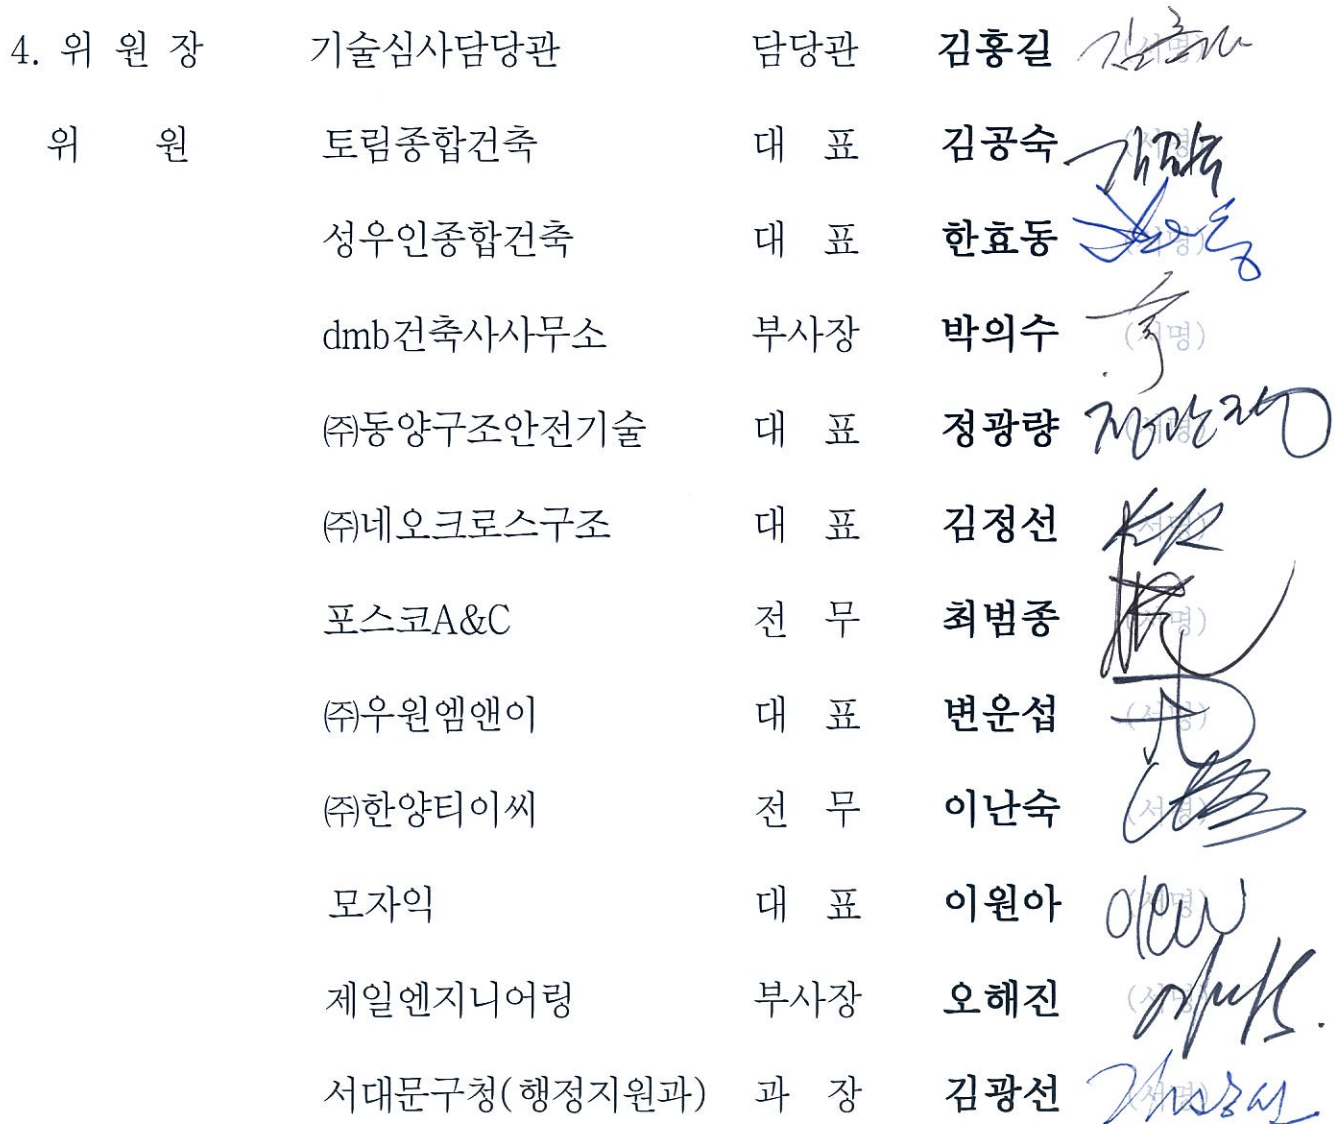 4. 위 원 장 기술심사담당관 담당관 김홍길 (서명)
위 원 토림종합건축 대 표 김공숙 (서명)
성우인종합건축 대 표 한효동 (서명)
dmb건축사사무소 부사장 박의수 (서명)
㈜동양구조안전기술 대 표 정광량 (서명)
㈜네오크로스구조 대 표 김정선 (서명)
포스코A&C 전 무 최범종 (서명)
㈜우원엠앤이 대 표 변운섭 (서명)
㈜한양티이씨 전 무 이난숙 (서명)
모자익 대 표 이원아 (서명)
제일엔지니어링 부사장 오해진 (서명)
서대문구청(행정지원과) 과 장 김광선 (서명)